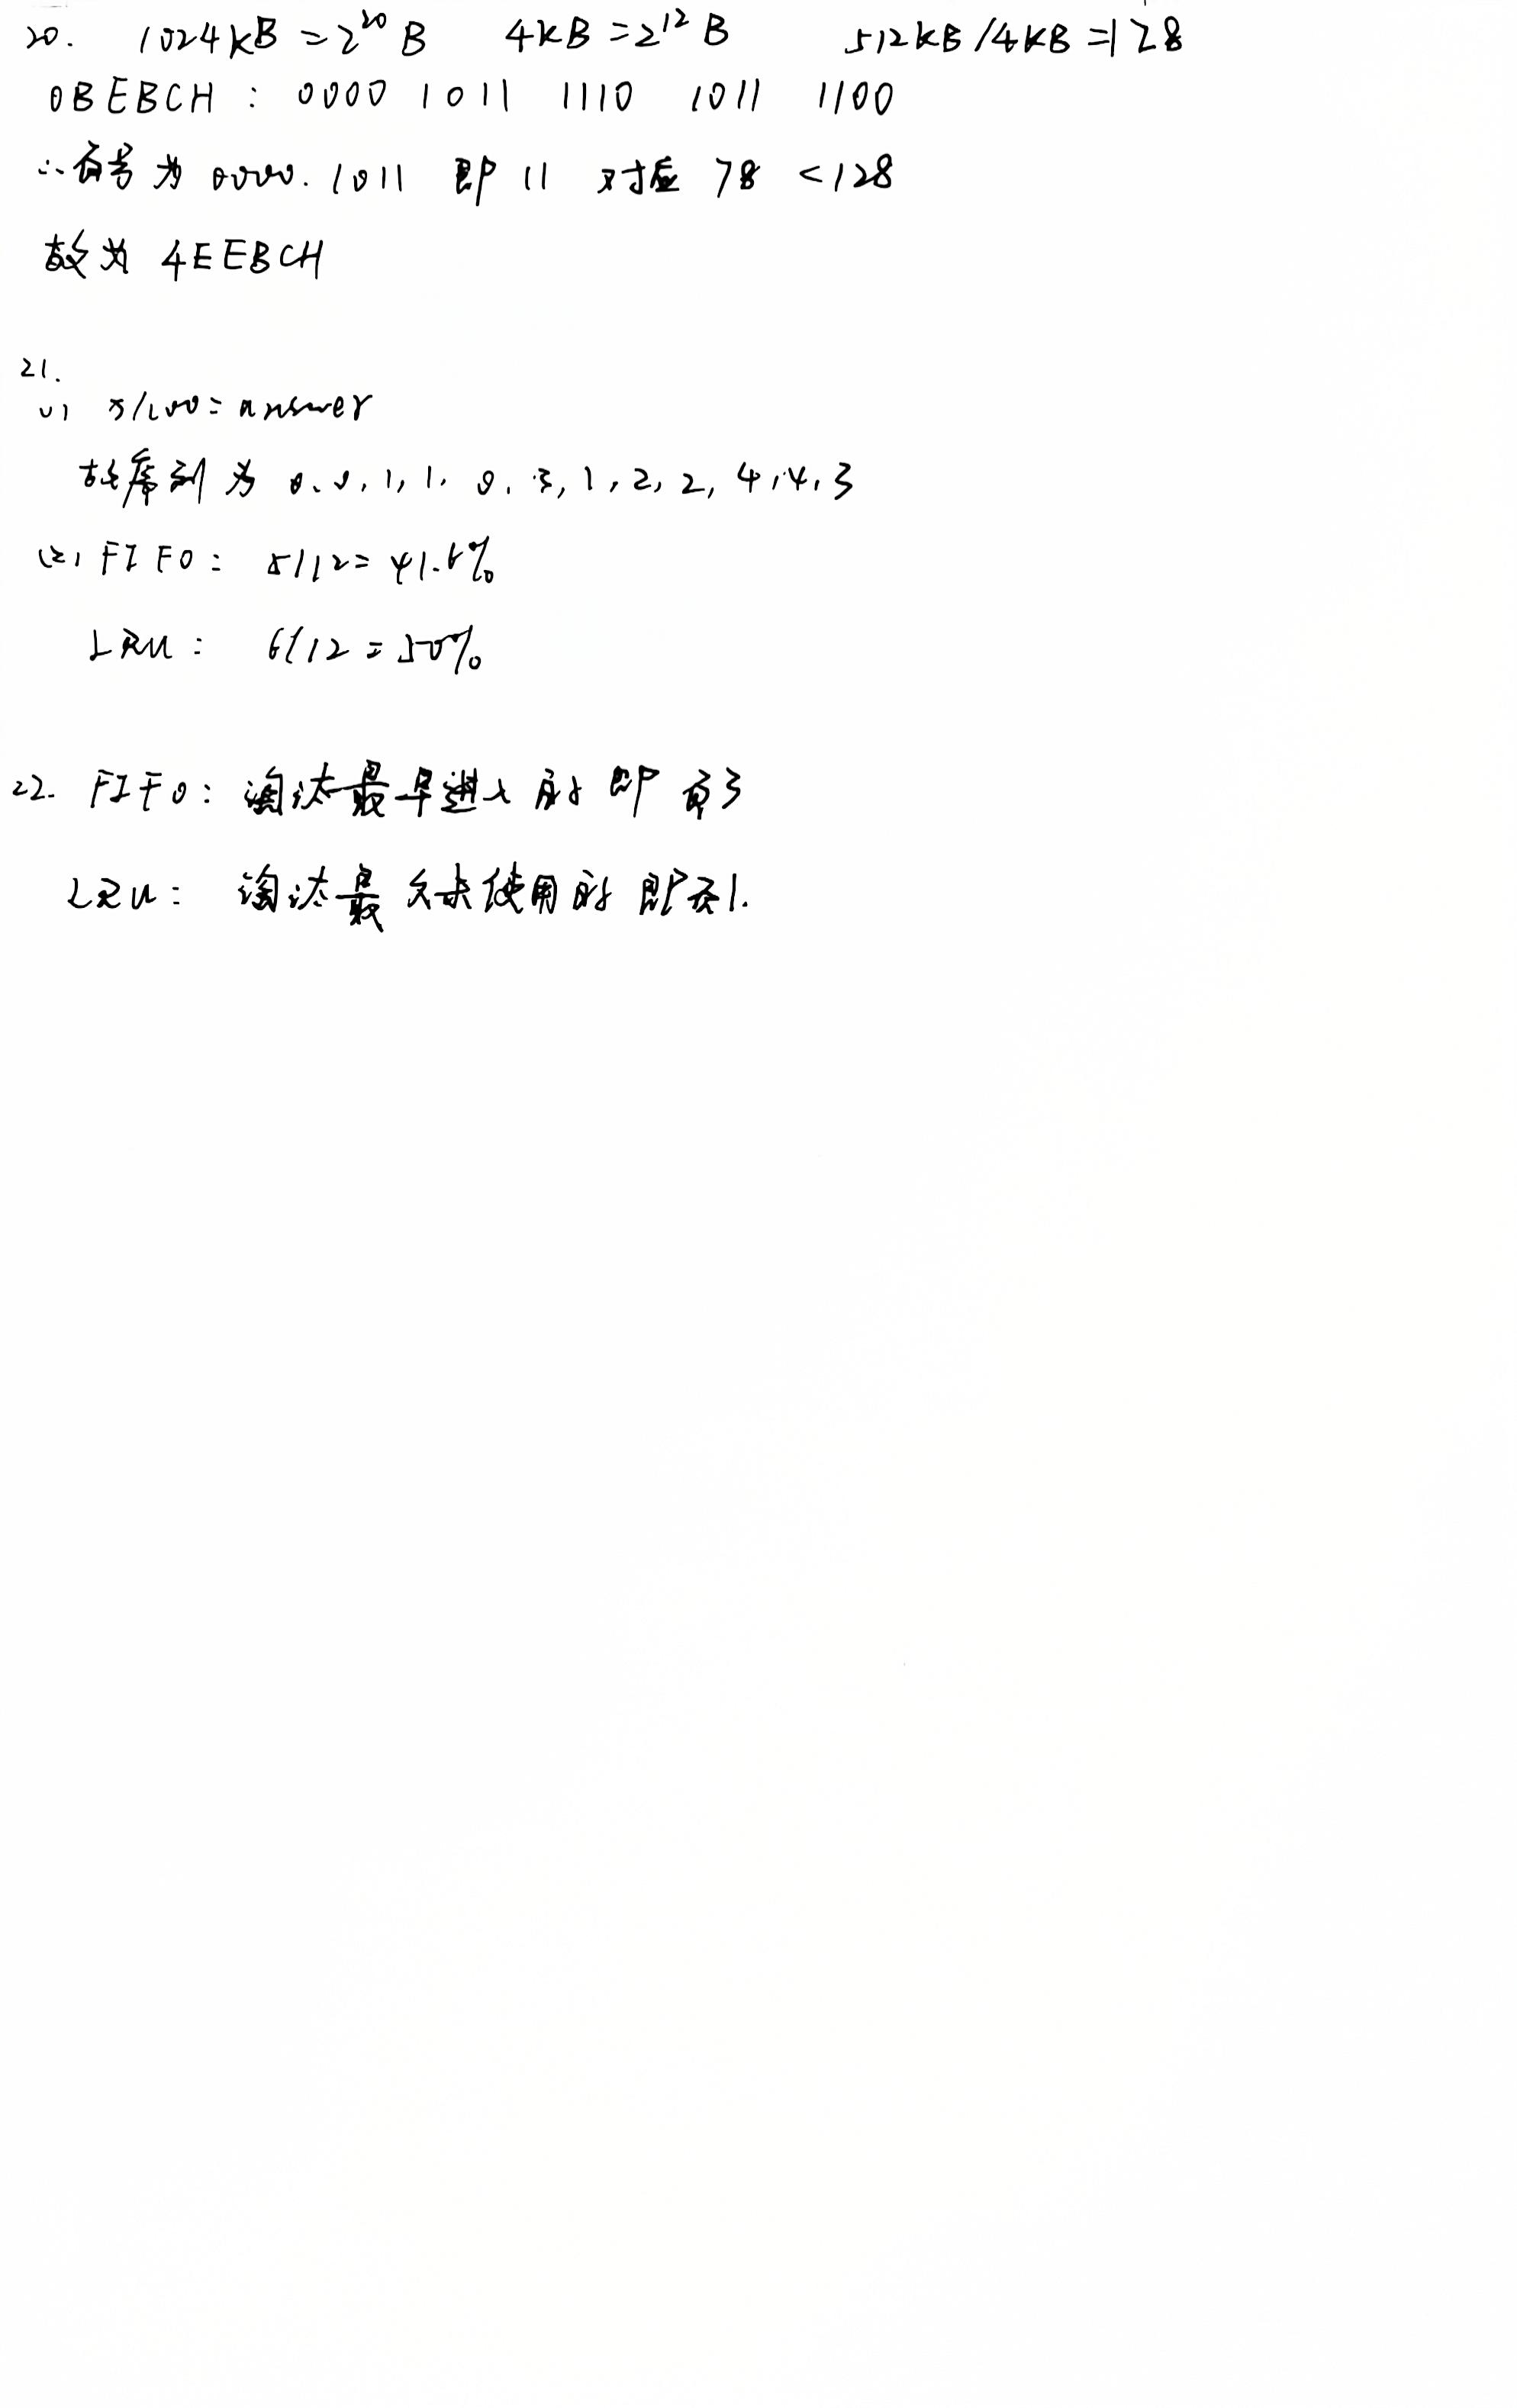 20. 1024kB = 2^20 B 4kB = 2^12 B 512kB/4kB = 128
0BEBCH : 0000 1011 1110 1011 1100
∴ 页号为 0000.1011 即 11 对应 78 <128
故为 4EEBCH
21.
(1) x/100 = answer
故序列为 0.0,1,1.0.3,1,2,2,4,4,3
(2) FIFO: 5/12 = 41.6%
LRU: 6/12 = 50%
22. FIFO: 淘汰最早进入的 即 页3
LRU: 淘汰最久未使用的 即页1.